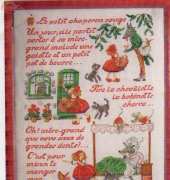 Le petit chaperon rouge
Un jour, elle partit
porter à sa mère-
grand malade une
galette et un petit
pot de beurre...
Tire la chevillette
la bobinette
cherra...
Oh! mère-grand
que vous avez de
grandes dents!...
C'est pour
mieux te
manger